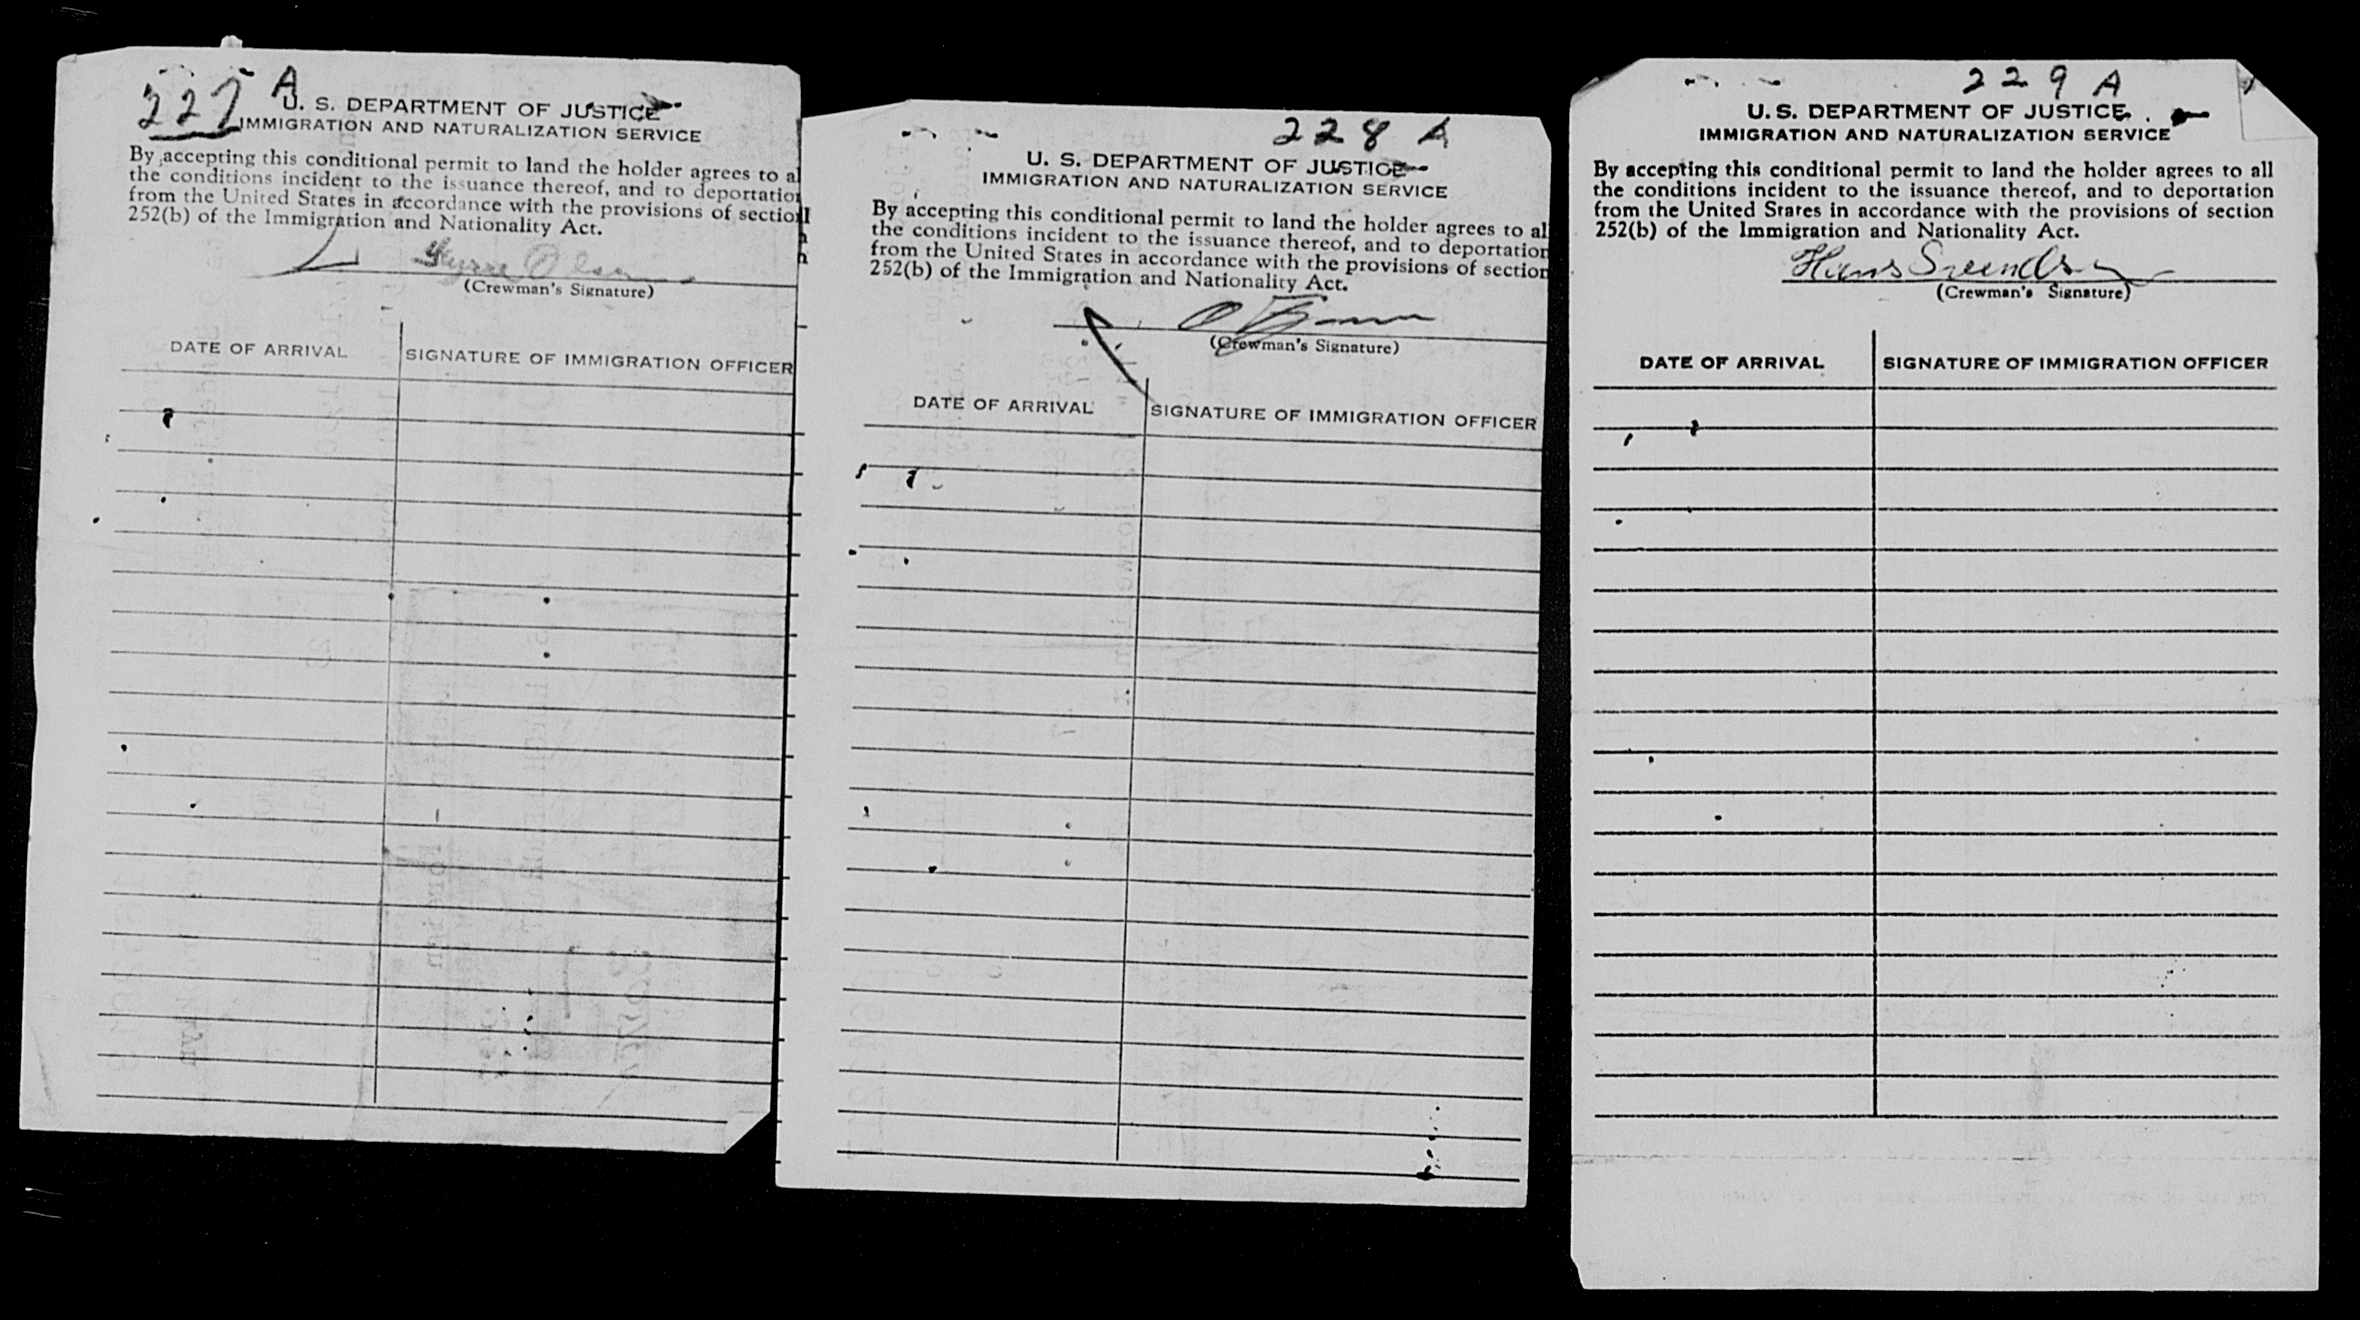 227 A
U. S. DEPARTMENT OF JUSTICE
IMMIGRATION AND NATURALIZATION SERVICE
By accepting this conditional permit to land the holder agrees to al
the conditions incident to the issuance thereof, and to deportation
from the United States in accordance with the provisions of section
252(b) of the Immigration and Nationality Act.
Olsen
(Crewman's Signature)
DATE OF ARRIVAL
SIGNATURE OF IMMIGRATION OFFICER
228 A
U. S. DEPARTMENT OF JUSTICE
IMMIGRATION AND NATURALIZATION SERVICE
By accepting this conditional permit to land the holder agrees to al
the conditions incident to the issuance thereof, and to deportation
from the United States in accordance with the provisions of section
252(b) of the Immigration and Nationality Act.
(Crewman's Signature)
DATE OF ARRIVAL
SIGNATURE OF IMMIGRATION OFFICER
229 A
U. S. DEPARTMENT OF JUSTICE
IMMIGRATION AND NATURALIZATION SERVICE
By accepting this conditional permit to land the holder agrees to all
the conditions incident to the issuance thereof, and to deportation
from the United States in accordance with the provisions of section
252(b) of the Immigration and Nationality Act.
Hans Svendsen
(Crewman's Signature)
DATE OF ARRIVAL
SIGNATURE OF IMMIGRATION OFFICER